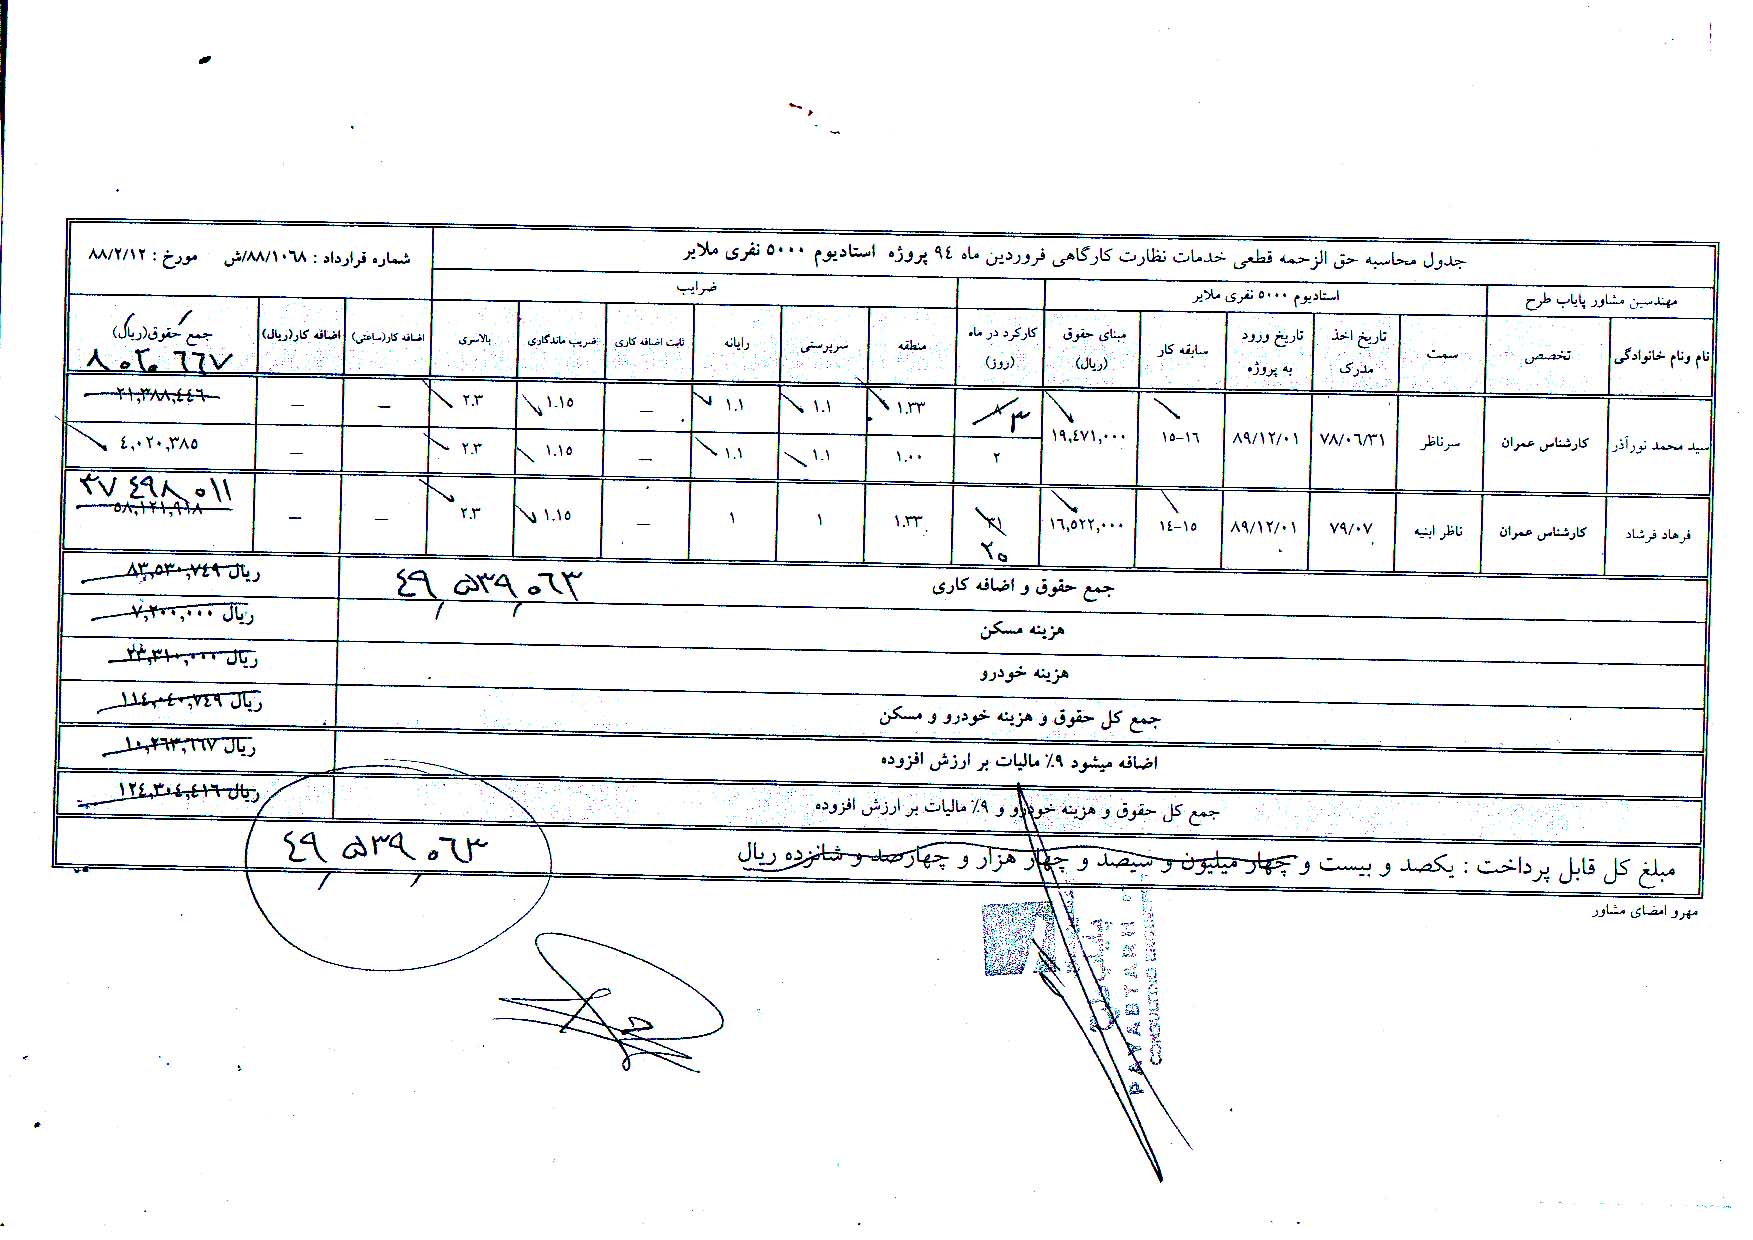 جدول محاسبه حق الزحمه قطعی خدمات نظارت کارگاهی فروردین ماه ۹۴ پروژه استادیوم ۵۰۰۰ نفری ملایر
شماره قرارداد : ۸۸/۱۰۶۸/ش مورخ : ۸۸/۲/۱۲
مهندسین مشاور پایاب طرح
استادیوم ۵۰۰۰ نفری ملایر
ضرایب
نام ونام خانوادگی تخصص سمت تاریخ اخذ مدرک تاریخ ورود به پروژه سابقه کار مبنای حقوق (ریال) کارکرد در ماه (روز) منطقه سرپرستی رایانه ثابت اضافه کاری ضریب ماندگاری بالاسری اضافه کار(ساعتی) اضافه کار(ریال) جمع حقوق(ریال)
سید محمد نورآذر کارشناس عمران سرناظر ۷۸/۰۶/۳۱ ۸۹/۱۲/۰۱ ۱۵-۱۶ ۱۹,۴۷۱,۰۰۰ ۸ ۳ ۱.۳۳ ۱.۱ ۱.۱ — ۱.۱۵ ۲.۳ — — ۲۱,۳۸۸,۴۴۶ ۸۰۲۰۶۶۷
۲ ۱.۰۰ ۱.۱ ۱.۱ — ۱.۱۵ ۲.۳ — ۴,۰۲۰,۳۸۵
فرهاد فرشاد کارشناس عمران ناظر ابنیه ۷۹/۰۷ ۸۹/۱۲/۰۱ ۱۴-۱۵ ۱۶,۵۲۲,۰۰۰ ۳۱ ۲۰ ۱.۳۳ ۱ ۱ — ۱.۱۵ ۲.۳ — — ۵۸,۱۲۱,۹۱۸ ۳۷۴۹۸۰۱۱
جمع حقوق و اضافه کاری ۴۹,۵۳۹,۰۶۳ ۸۳,۵۳۰,۷۴۹ ریال
هزینه مسکن ۷,۲۰۰,۰۰۰ ریال
هزینه خودرو ۲۳,۳۱۰,۰۰۰ ریال
جمع کل حقوق و هزینه خودرو و مسکن ۱۱۴,۰۴۰,۷۴۹ ریال
اضافه میشود ۹٪ مالیات بر ارزش افزوده ۱۰,۲۶۳,۶۶۷ ریال
جمع کل حقوق و هزینه خودرو و ۹٪ مالیات بر ارزش افزوده ۱۲۴,۳۰۴,۴۱۶ ریال
مبلغ کل قابل پرداخت : یکصد و بیست و چهار میلیون و سیصد و چهار هزار و چهارصد و شانزده ریال ۴۹,۵۳۹,۰۶۳
مهرو امضای مشاور
پایاب طرح
PAYABTARH